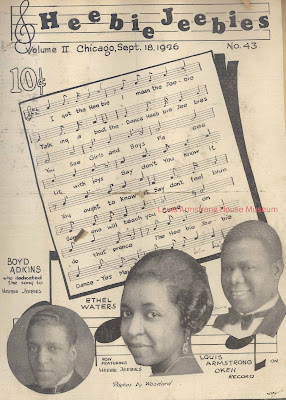 Heebie Jeebies
Volume II Chicago, Sept. 18, 1926 No. 43.
10¢
I got the Hee bie I mean the Jee - bie
Talk ing a bout the Dance Heeb bie Jee bies
You See Girls and Boys Fa ces
Lit with joys Say don't You Know it
You ought to know Say don't feel blue
Some one will teach you on
do that prance The Hee bie Jee bie
Dance - Yes Ma
Louis Armstrong House Museum
BOYD
ADKINS
who dedicated
the song to
HEEBIE JEEBIES
ETHEL
WATERS
NOW
FEATURING
HEEBIE JEEBIES
LOUIS
ARMSTRONG ON
OKEH
RECORD
Photos by Woodard